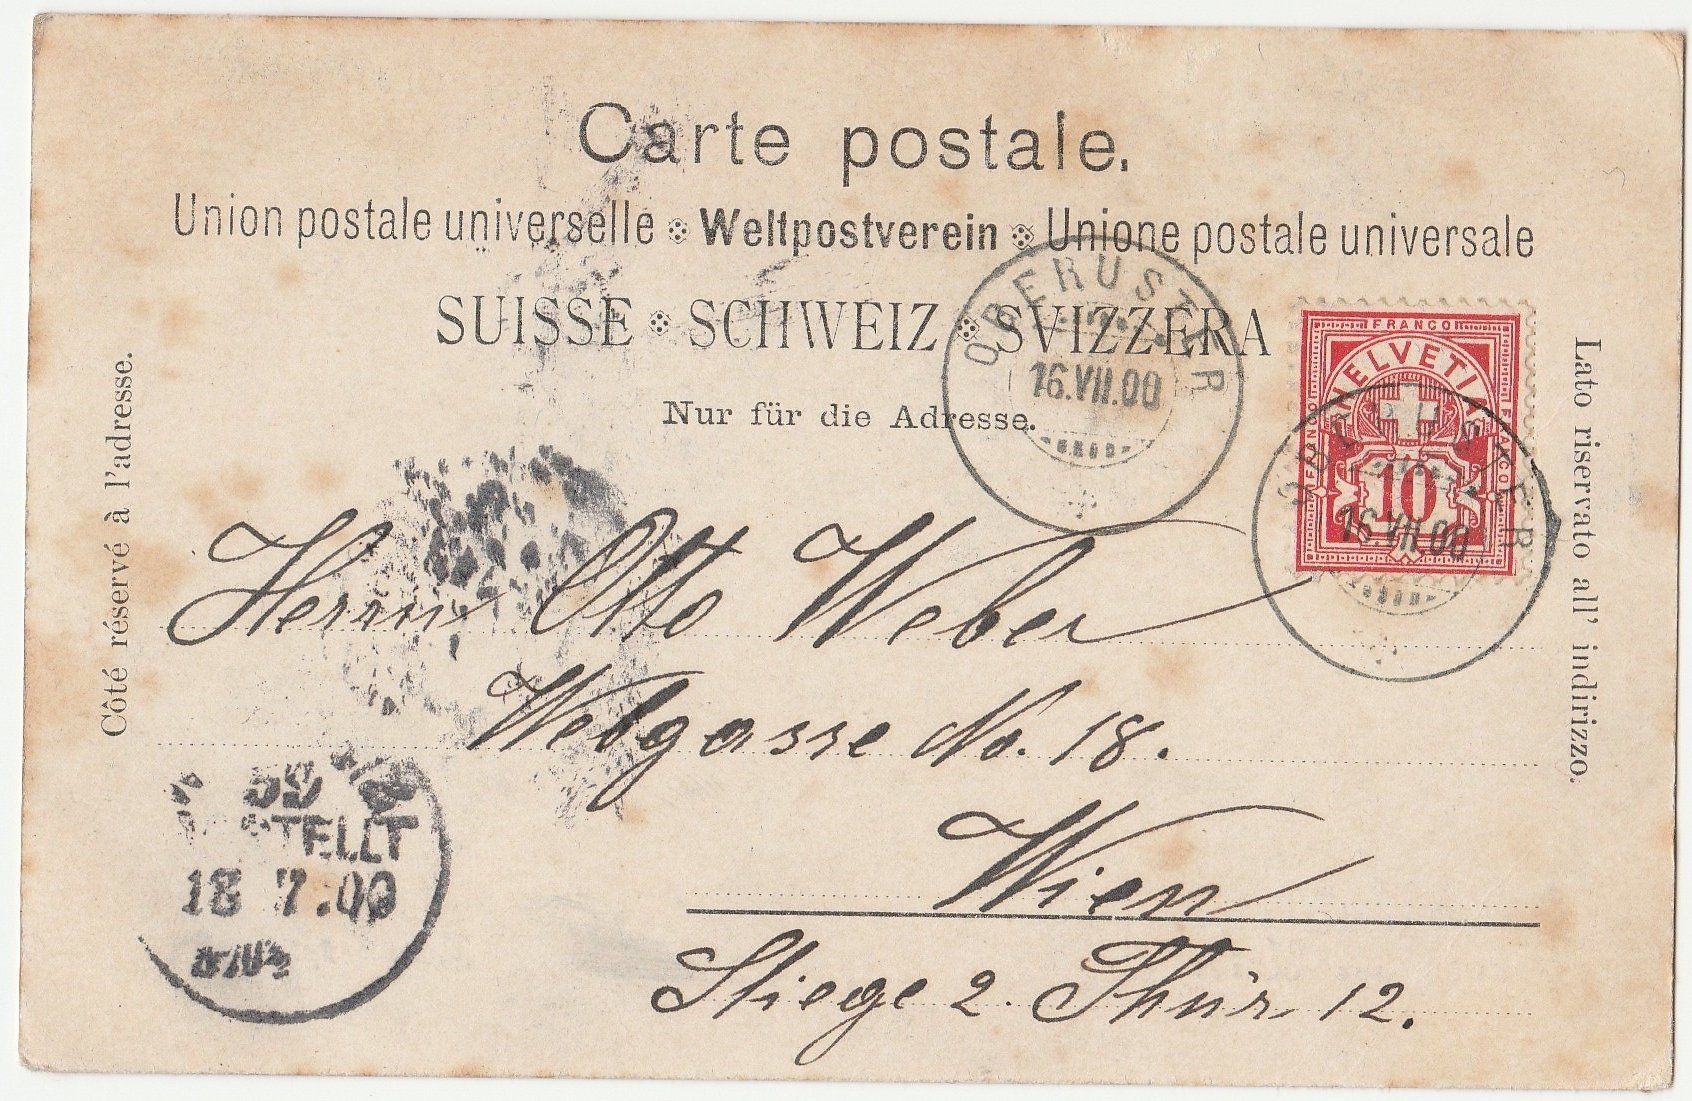 Carte postale.
Union postale universelle Weltpostverein Unione postale universale
SUISSE SCHWEIZ SVIZZERA
Nur für die Adresse.
Côté réservé à l'adresse.
Lato riservato all' indirizzo.
OBERUSTER
16.VII.00
FRANCO
FRANCO
FRANCO
HELVETIA
10
OBERUSTER
16.VII.00
Herrn Otto Weber
Webgasse No. 18.
Wien
Stiege 2. Thür 12.
59
18 7.00